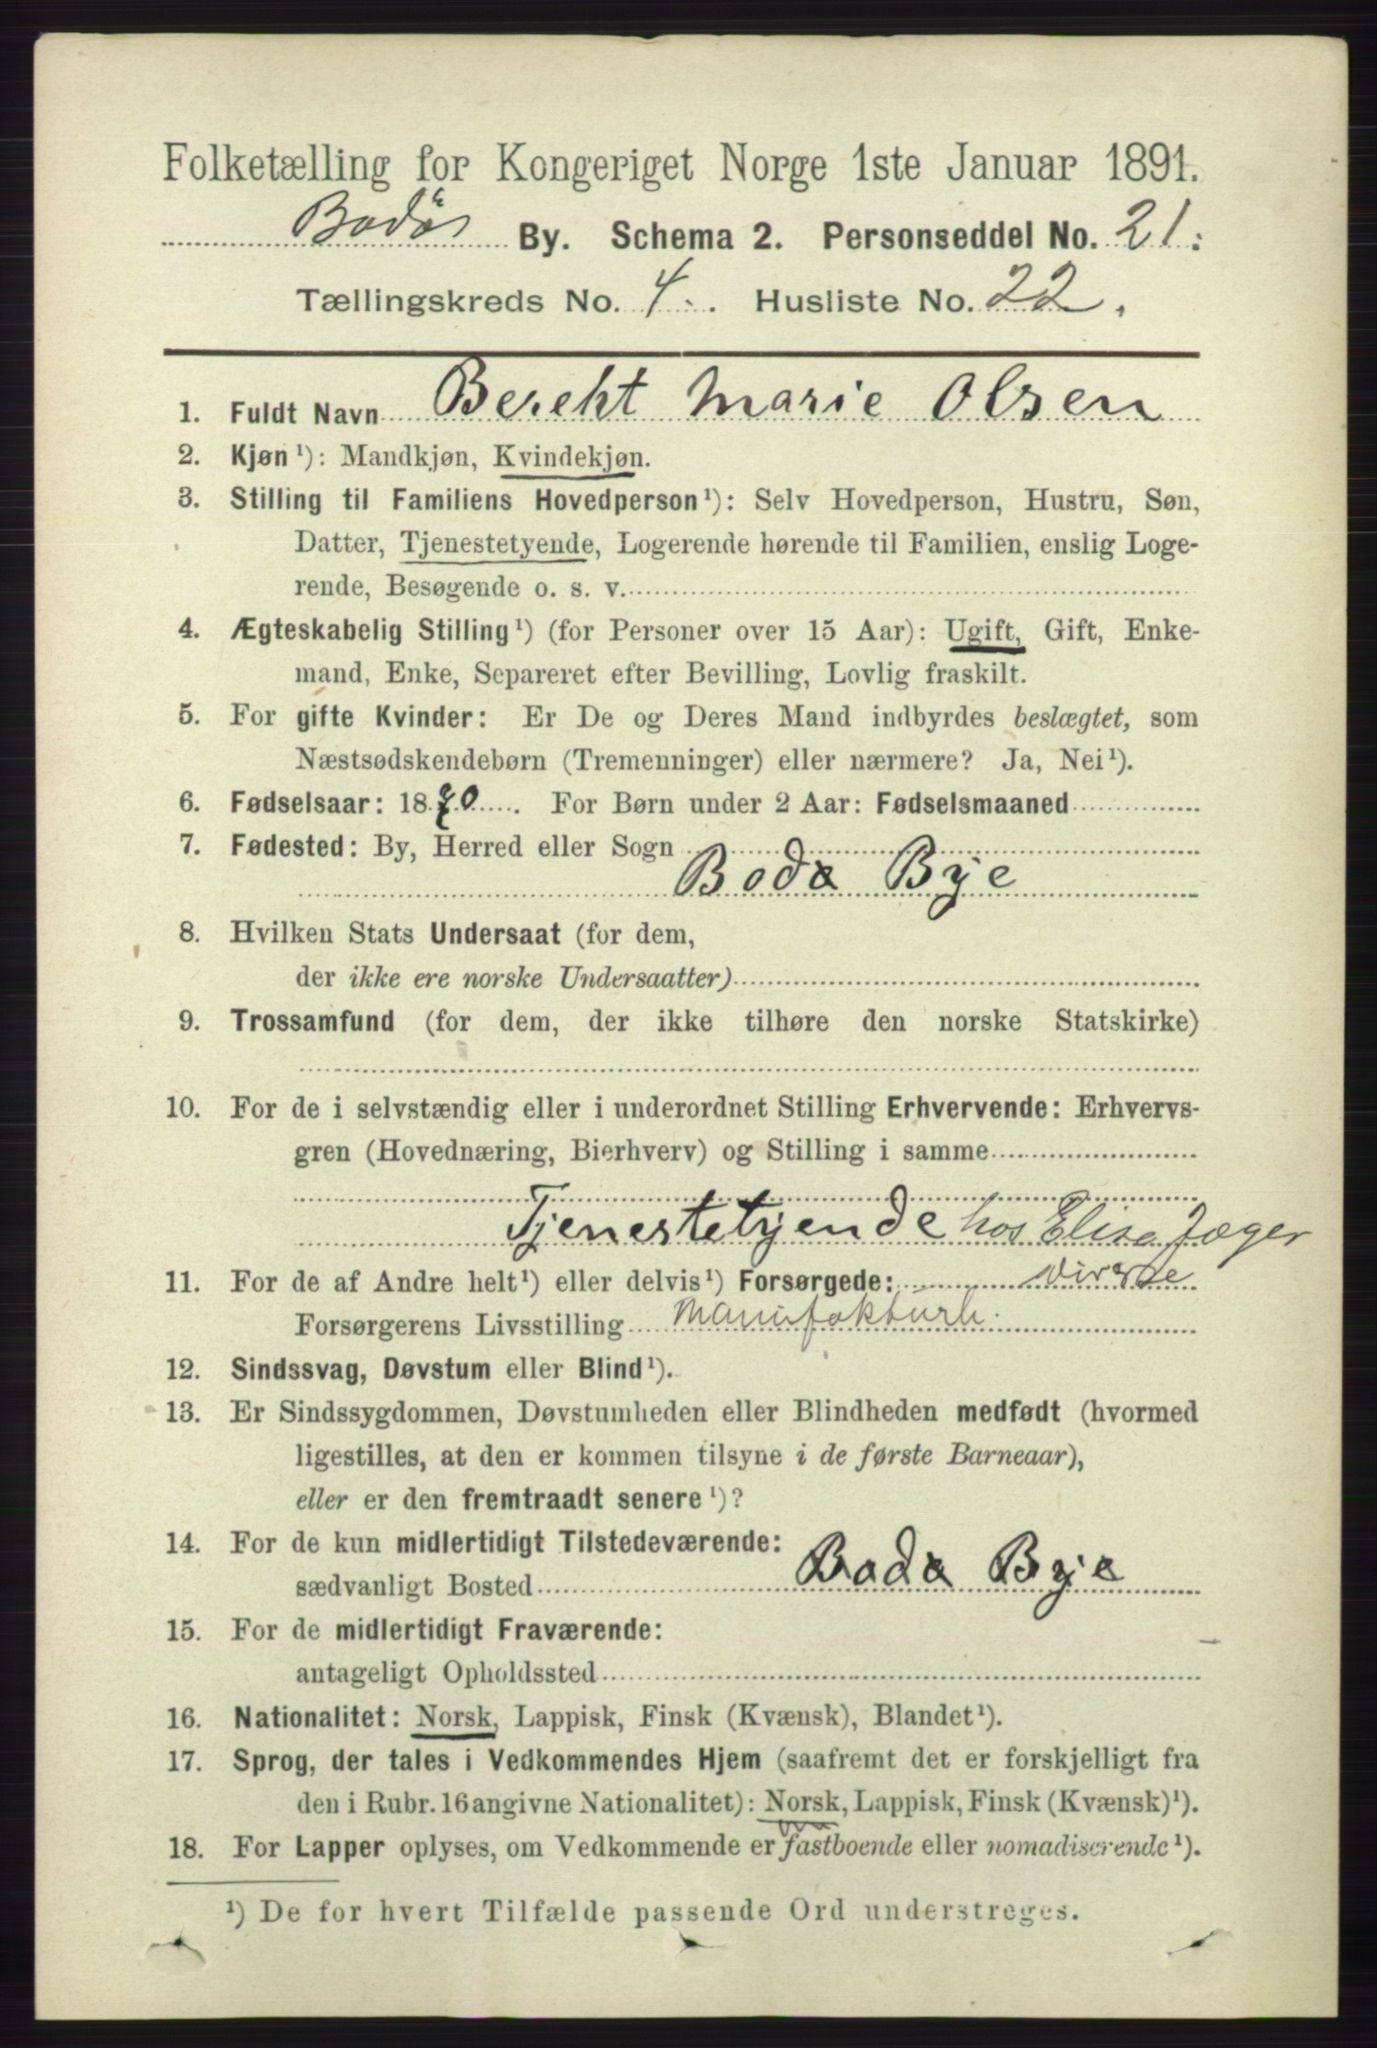 Folketælling for Kongeriget Norge 1ste Januar 1891.
Bodøs By. Schema 2. Personseddel No. 21.
Tællingskreds No. 4. Husliste No. 22.
1. Fuldt Navn Berekt Marie Olsen
2. Kjøn¹): Mandkjøn, Kvindekjøn.
3. Stilling til Familiens Hovedperson¹): Selv Hovedperson, Hustru, Søn,
Datter, Tjenestetyende, Logerende hørende til Familien, enslig Loge-
rende, Besøgende o. s. v.
4. Ægteskabelig Stilling¹) (for Personer over 15 Aar): Ugift, Gift, Enke-
mand, Enke, Separeret efter Bevilling, Lovlig fraskilt.
5. For gifte Kvinder: Er De og Deres Mand indbyrdes beslægtet, som
Næstsødskendebørn (Tremenninger) eller nærmere? Ja, Nei¹).
6. Fødselsaar: 1870. For Børn under 2 Aar: Fødselsmaaned
7. Fødested: By, Herred eller Sogn
Bodø Bye
8. Hvilken Stats Undersaat (for dem,
der ikke ere norske Undersaatter)
9. Trossamfund (for dem, der ikke tilhøre den norske Statskirke)
10. For de i selvstændig eller i underordnet Stilling Erhvervende: Erhvervs-
gren (Hovednæring, Bierhverv) og Stilling i samme
Tjenestetyende hos Elise Jæger
11. For de af Andre helt¹) eller delvis¹) Forsørgede: diverse
Forsørgerens Livsstilling Manufakturh.
12. Sindssvag, Døvstum eller Blind¹).
13. Er Sindssygdommen, Døvstumheden eller Blindheden medfødt (hvormed
ligestilles, at den er kommen tilsyne i de første Barneaar),
eller er den fremtraadt senere¹)?
14. For de kun midlertidigt Tilstedeværende:
sædvanligt Bosted Bodø Bye
15. For de midlertidigt Fraværende:
antageligt Opholdssted
16. Nationalitet: Norsk, Lappisk, Finsk (Kvænsk), Blandet¹).
17. Sprog, der tales i Vedkommendes Hjem (saafremt det er forskjelligt fra
den i Rubr. 16 angivne Nationalitet): Norsk, Lappisk, Finsk (Kvænsk)¹).
18. For Lapper oplyses, om Vedkommende er fastboende eller nomadiserende¹).
¹) De for hvert Tilfælde passende Ord understreges.